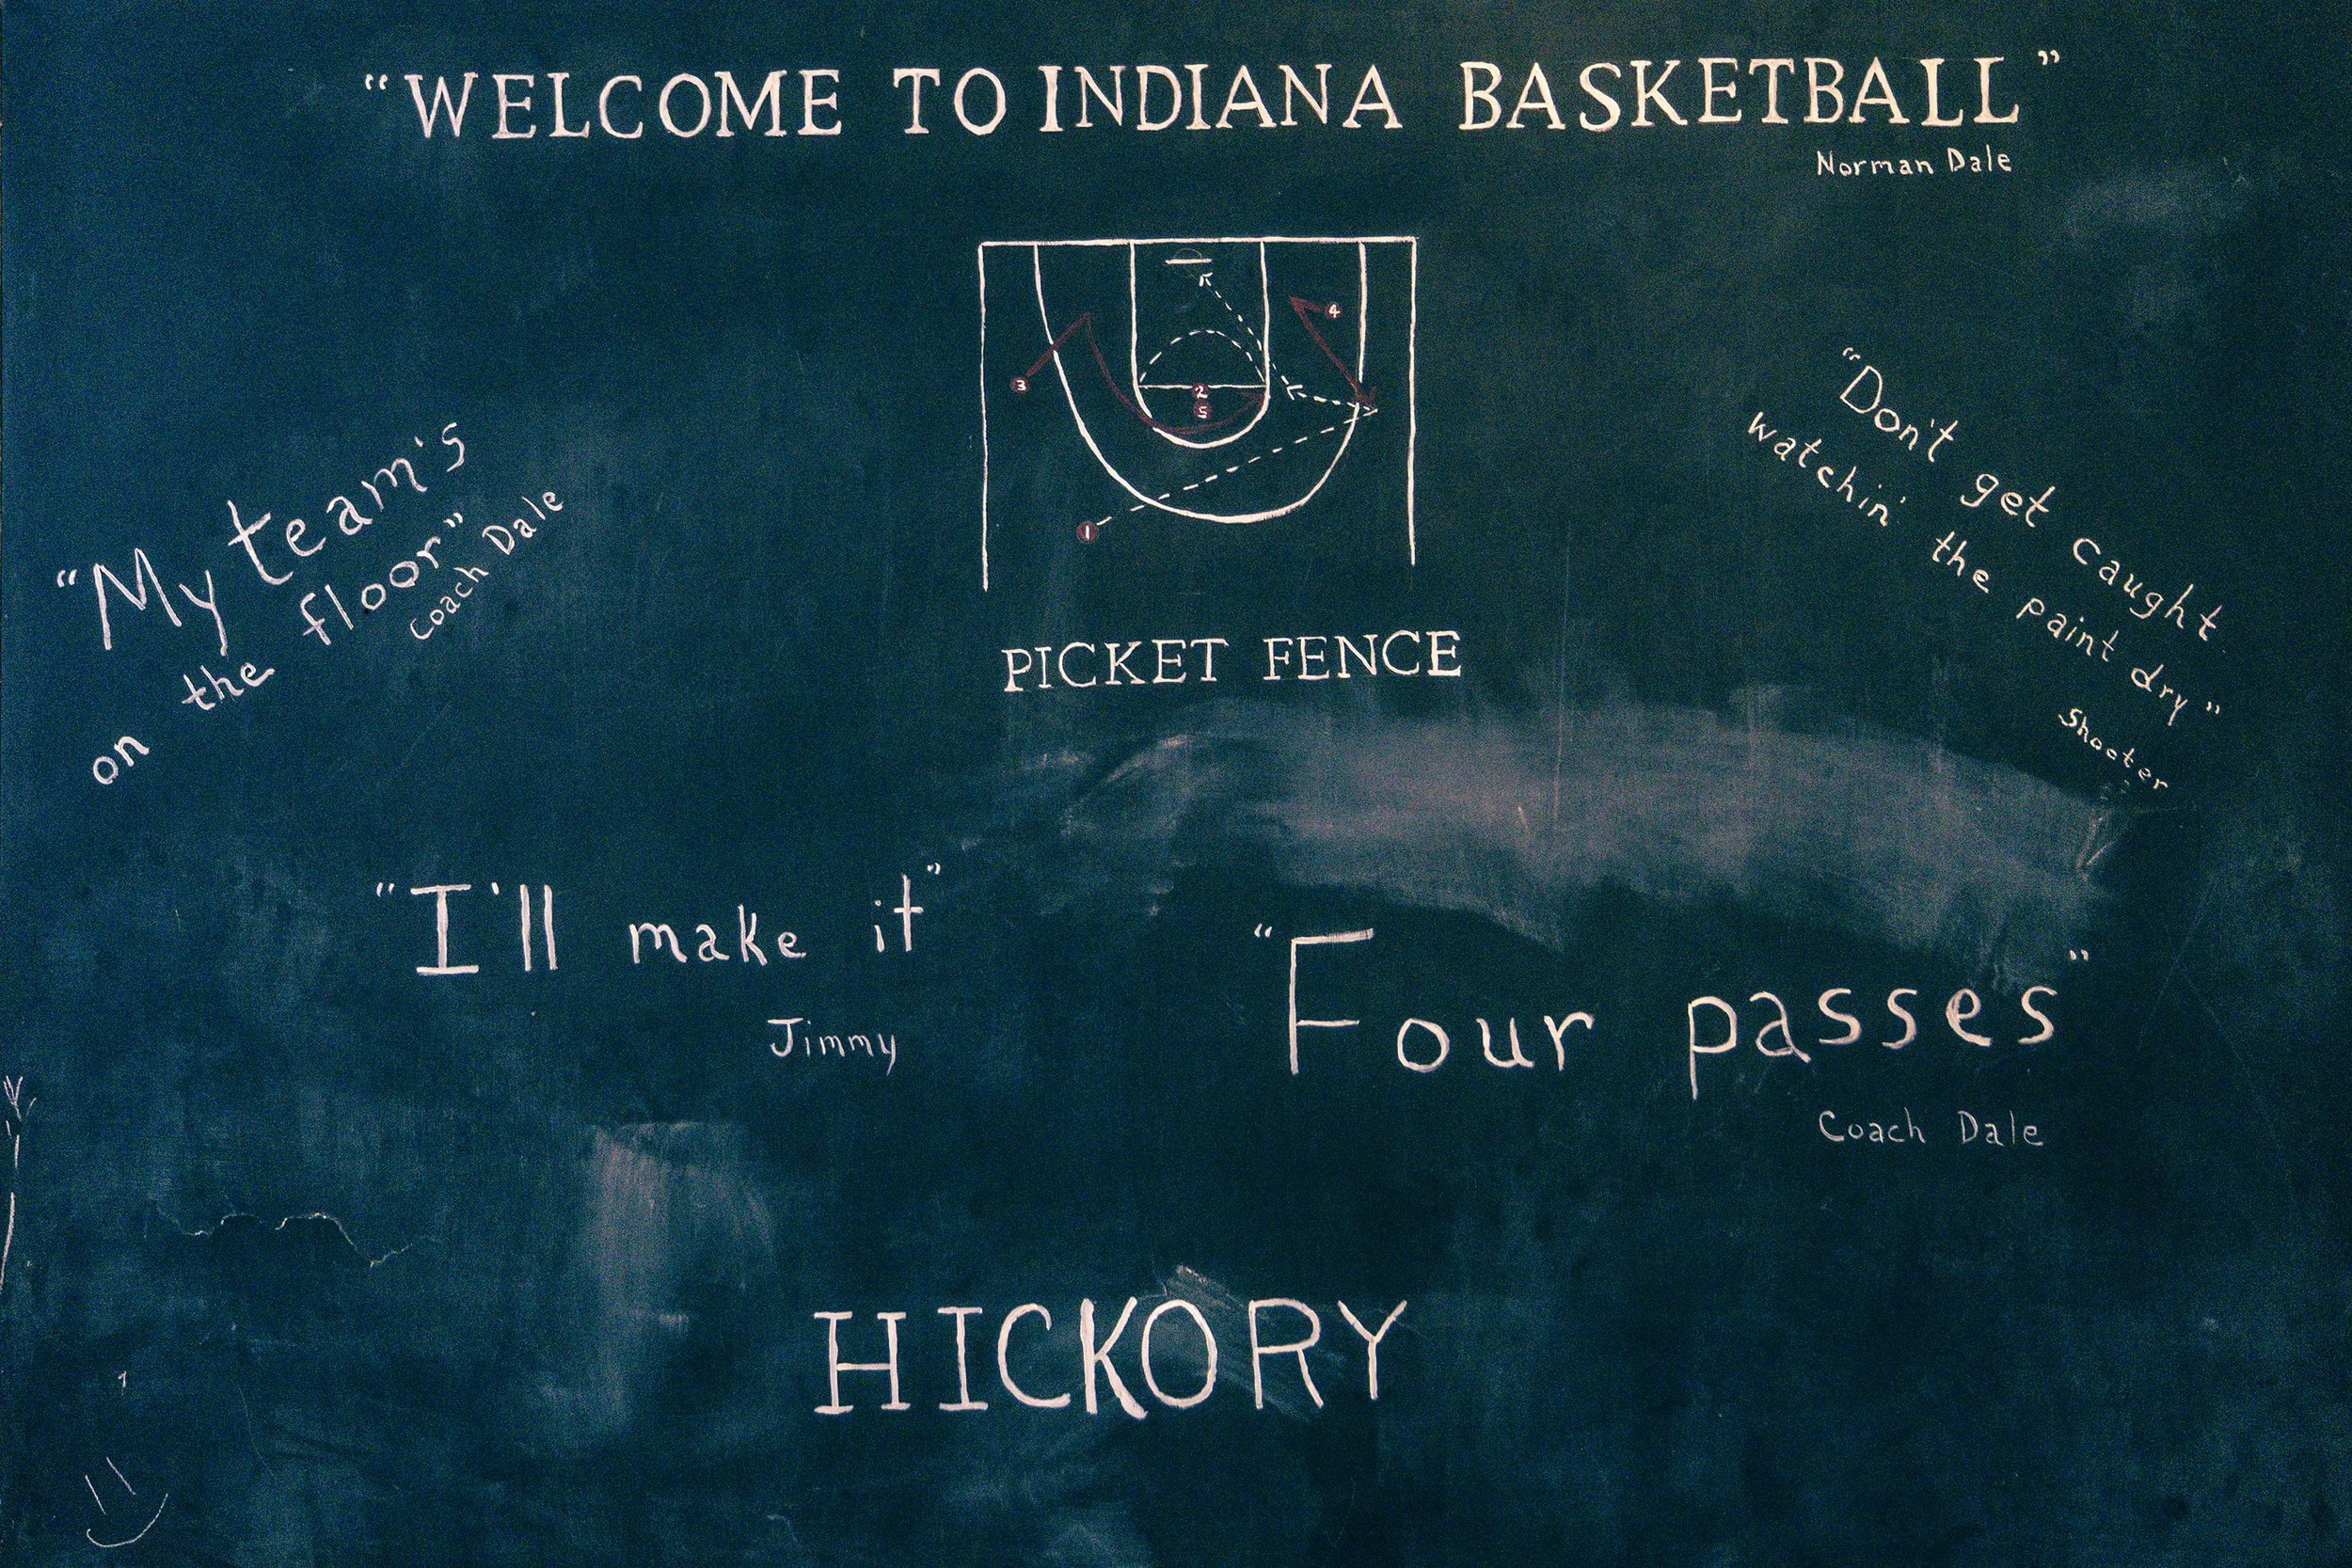 “WELCOME TO INDIANA BASKETBALL”
Norman Dale
4
3
2
5
1
PICKET FENCE
“My team's
on the floor”
Coach Dale
“Don't get caught
watchin' the paint dry”
Shooter
“I'll make it”
Jimmy
“Four passes”
Coach Dale
HICKORY